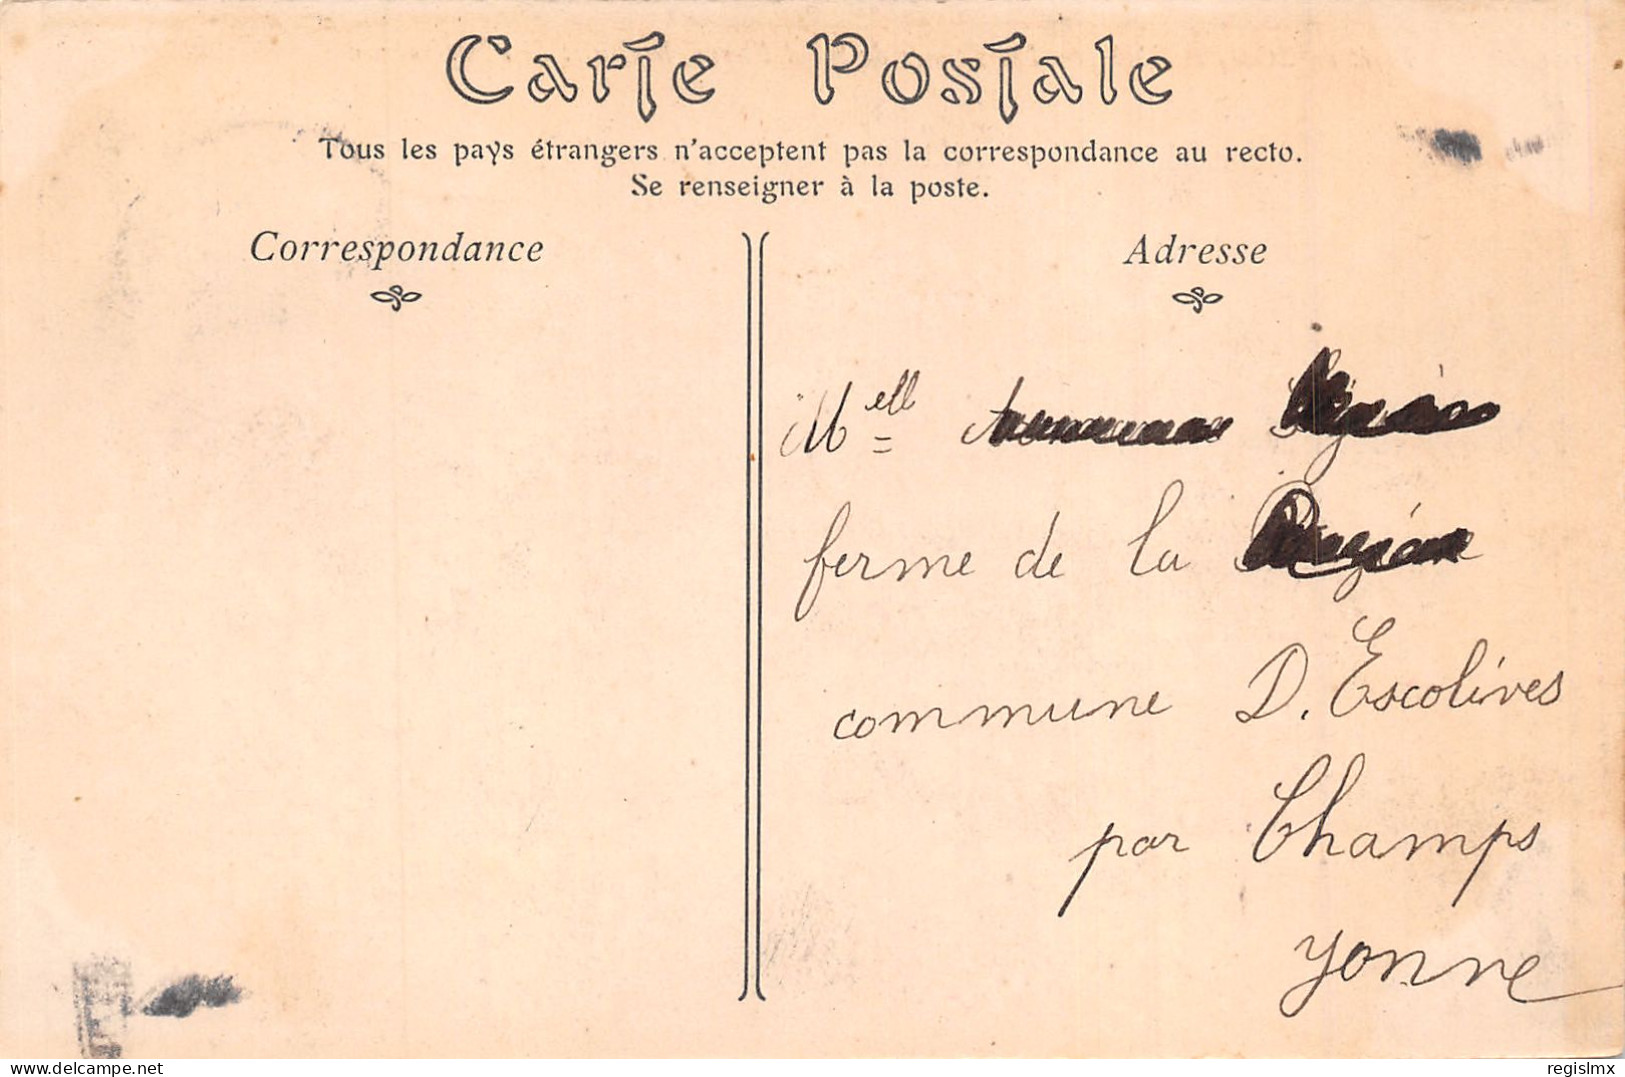 Carte Postale
Tous les pays étrangers n'acceptent pas la correspondance au recto.
Se renseigner à la poste.
Correspondance
Adresse
Mell
ferme de la
commune D. Escolives
par Champs
Yonne
delcampe.net
regislmx